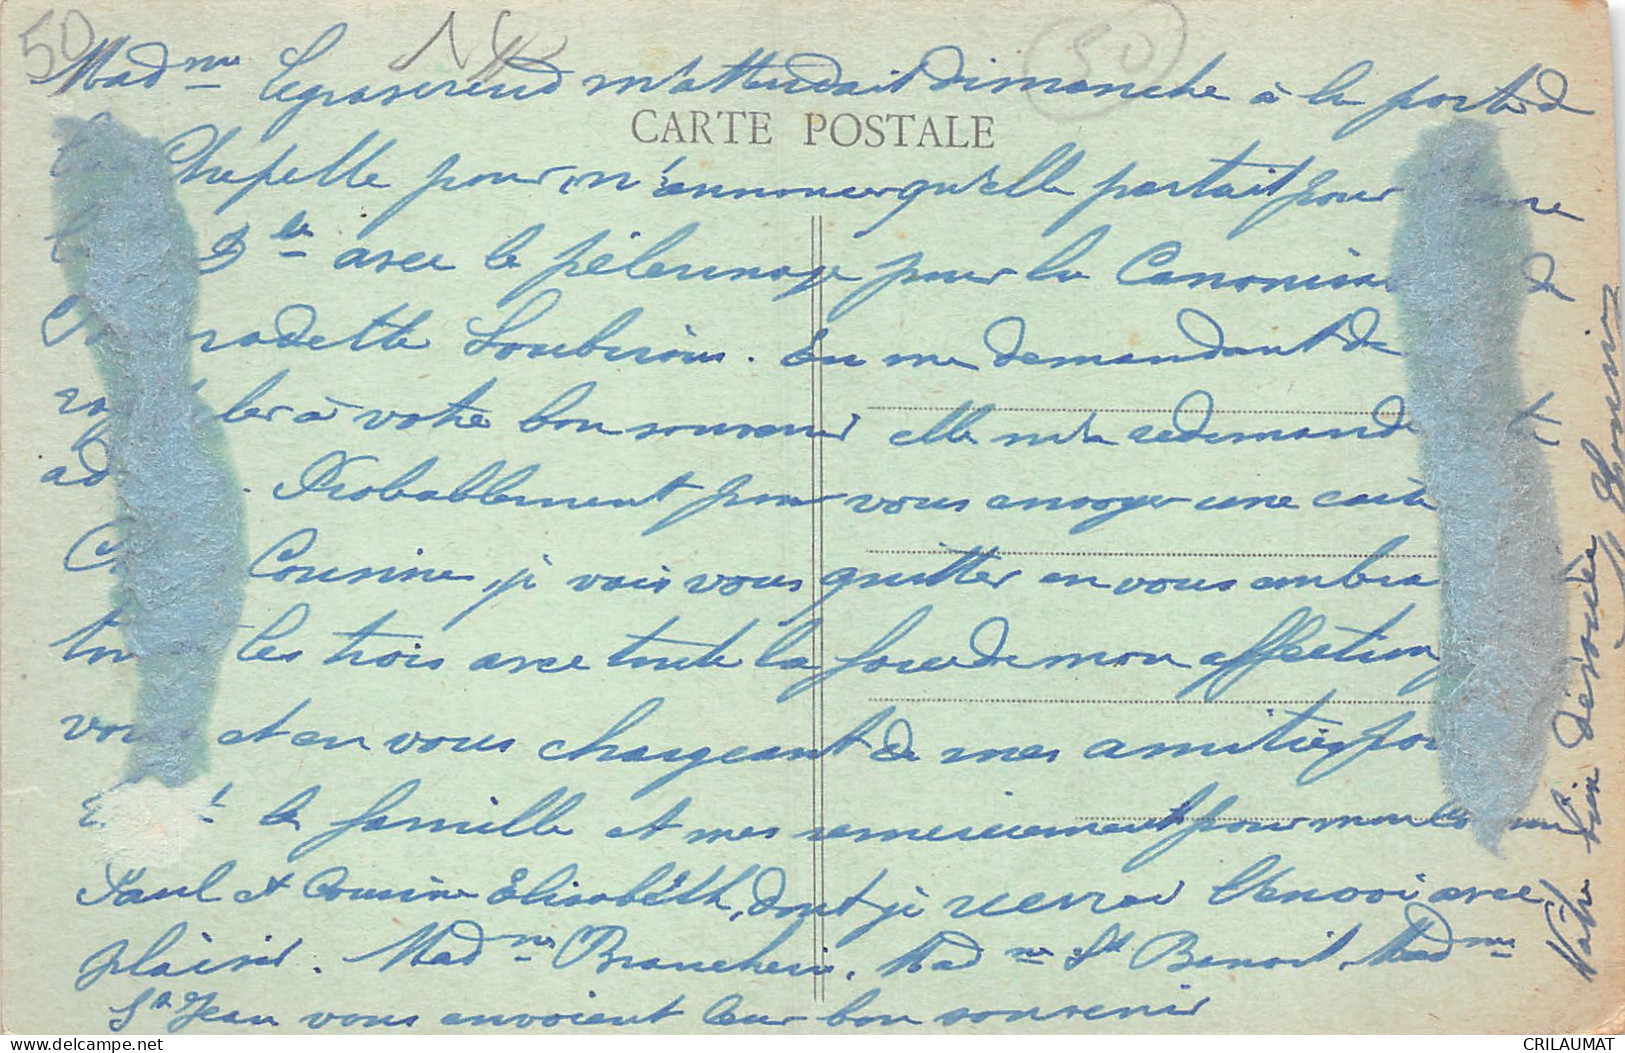 50 50
Madme m'attendait dimanche à la porte d
CARTE POSTALE
Chapelle pour m'annoncer qu'elle partait pour
avec le pélerinage pour la Canonisa
radette Soubirous. En me demandant de
ler à votre bon souvenir elle m'a redemandé
ad . Probablement pour vous envoyer une carte
Cousine, je vais vous quitter en vous embra
les trois avec toute la force de mon affection
vous et en vous chargeant de mes amitiés pou
la famille et mes remerciements pour
Paul et Cousine Elisabeth, dont je reverrai l'envoi avec
plaisir. Madme Brancherie, Madme St Benoit, Madme
St Jean vous envoient leur bon souvenir
Votre bien dévouée
CRILAUMAT